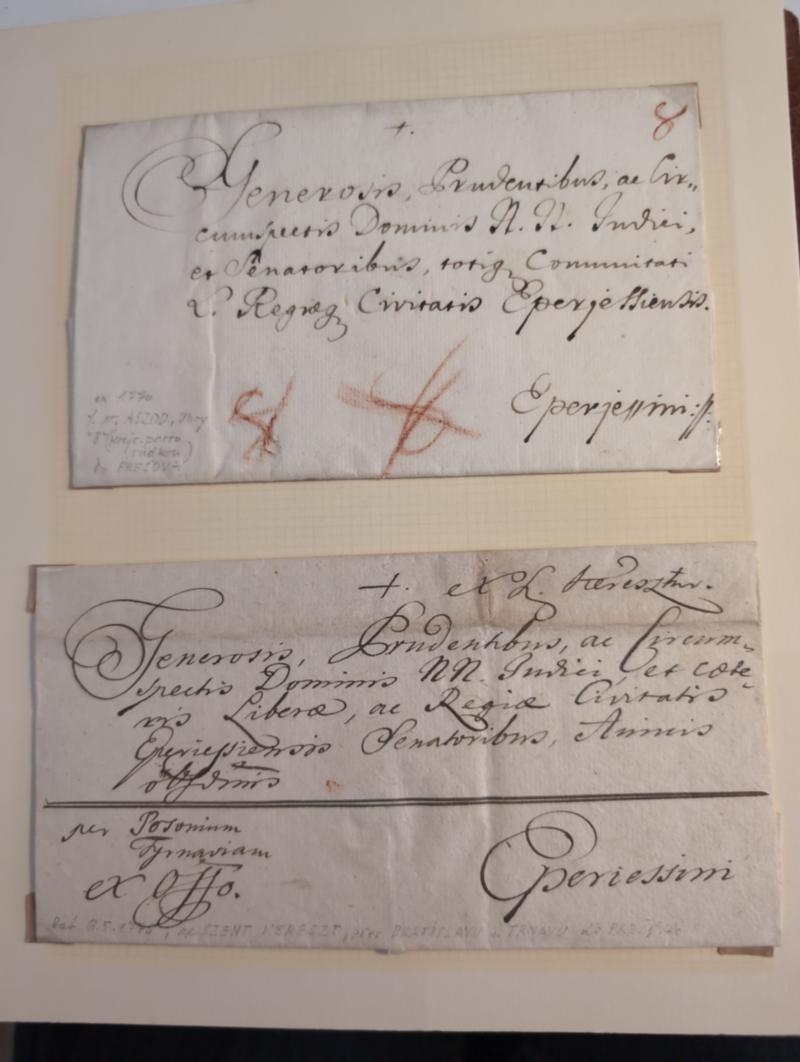 +.
8
Generosis, Prudentibus, ac Cir„
cumspectis Dominis N. N. Judici,
et Senatoribus, totiq Communitati
L. Regiæq Civitatis Eperjessiensis.
8
Eperjessini
ex 1770
ASZOD, Uhry
"8" krejc. porto
PREŠOVA
+. ex L. Kereſztur.
Generosis, Prudentibus, ac Circum-
spectis Dominis NN. Judici, et cæte-
ris Liberæ, ac Regiæ Civitatis
Eperiessiensis Senatoribus, Amicis
obsdmis
per Posonium
Tyrnaviam
ex Offo.
Eperiessini
SZENT KERESZT, BRATISLAVU a TRNAVU do